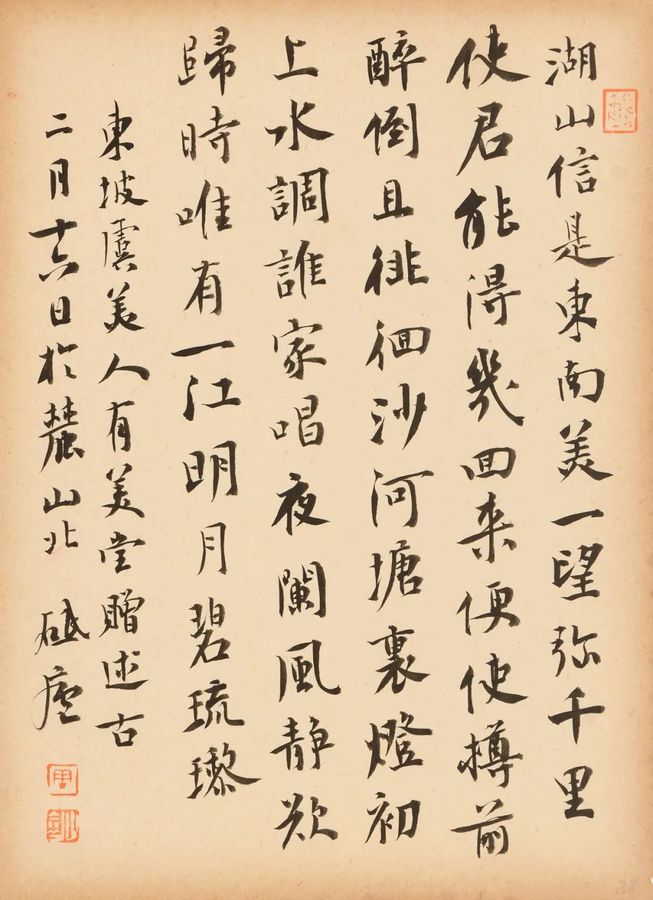 湖山信是東南美一望弥千里
使君能得幾回来便使樽前
醉倒且徘徊沙河塘裏燈初
上水調誰家唱夜闌風静欲
歸時唯有一江明月碧琉瓈
東坡虞美人有美堂贈述古
二月十六日於麓山北 砥廬